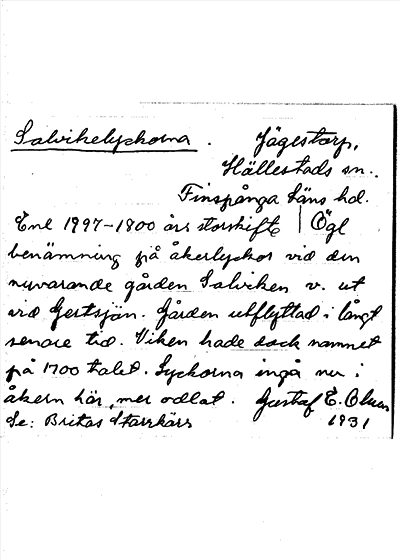 Salvikelyckorna. Jägestorp,
Hällestads sn.,
Finspånga läns hd.
Enl 1797-1800 års storskifte | Ögl
benämning på åkerlyckor vid den
nuvarande gården Salviken v. ut
vid Gertsjön. Gården utflyttad i långt
senare tid. Viken hade dock namnet
på 1700 talet. Lyckorna ingå nu i
åkern här, mer odlat. Gustaf E. Olsson
Se: Britas Starrkärr 1931